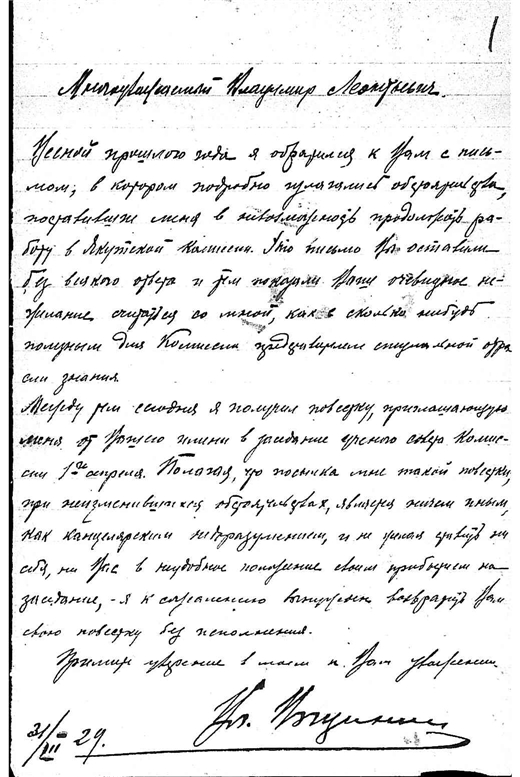 1
Многоуважаемый Владимир Леонтьевич.
Весной прошлого года я обратился к Вам с пись-
мом, в котором подробно излагались обстоятельства,
поставившие меня в невозможность продолжать ра-
боту в Якутской Комиссии. Это письмо Вы оставили
без всякого ответа и тем показали Ваше очевидное не-
желание считаться со мной, как в сколько нибудь
полезным для Комиссии представителем специальной отра-
сли знания.
Между тем сегодня я получил повестку, приглашающую
меня от Вашего имени в заседание ученого совета Комис-
сии 1го апреля. Полагая, что посылка мне такой повестки,
при неизменившихся обстоятельствах, является ничем иным,
как канцелярским недоразумением, и не желая ставить ни
себя, ни Вас в неудобное положение своим прибытием на
заседание, - я к сожалению вынужден возвратить Вам
свою повестку без исполнения.
Примите уверение в моем к Вам уважении
31/III 29.